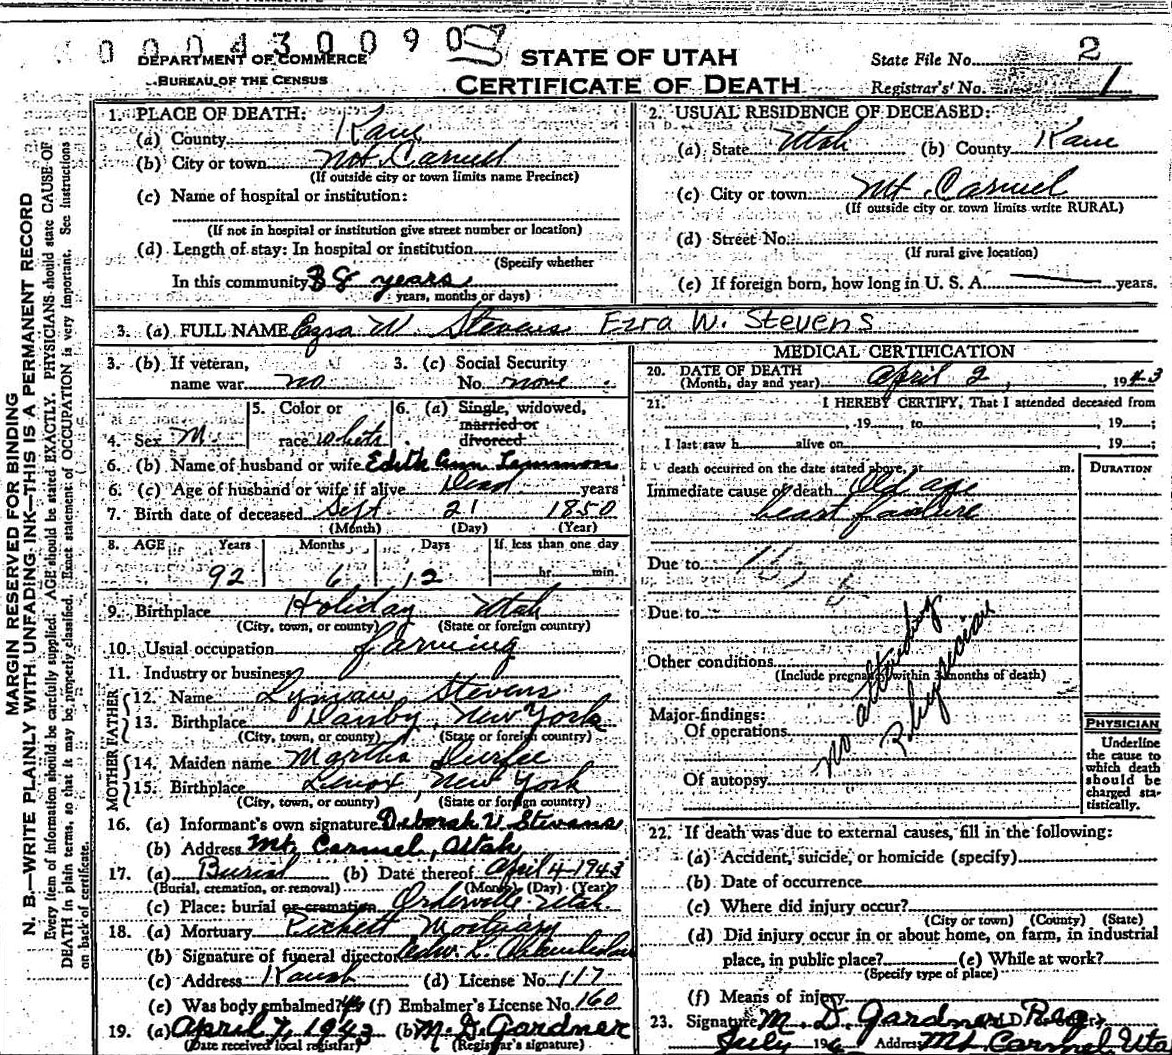 0 0 0 4 3 0 0 9 0
DEPARTMENT OF COMMERCE
BUREAU OF THE CENSUS
STATE OF UTAH
CERTIFICATE OF DEATH
State File No. 2
Registrar's' No. 1
MARGIN RESERVED FOR BINDING
N. B.—WRITE PLAINLY WITH UNFADING INK—THIS IS A PERMANENT RECORD
Every item of information should be carefully supplied. AGE should be stated EXACTLY. PHYSICIANS should state CAUSE OF
DEATH in plain terms, so that it may be properly classified. Exact statement of OCCUPATION is very important. See instructions
on back of certificate.
1. PLACE OF DEATH:
(a) County Kane
(b) City or town Mt. Carmel
(If outside city or town limits name Precinct)
(c) Name of hospital or institution:
(If not in hospital or institution give street number or location)
(d) Length of stay: In hospital or institution
(Specify whether
In this community 38 years
years, months or days)
2. USUAL RESIDENCE OF DECEASED:
(a) State Utah (b) County Kane
(c) City or town Mt. Carmel
(If outside city or town limits write RURAL)
(d) Street No.
(If rural give location)
(e) If foreign born, how long in U. S. A. years.
3. (a) FULL NAME Ezra W. Stevens Ezra W. Stevens
3. (b) If veteran,
name war no
3. (c) Social Security
No. none
4. Sex M.
5. Color or
race white
6. (a) Single, widowed,
married or
divorced
6. (b) Name of husband or wife Edith Ann Lemmon
6. (c) Age of husband or wife if alive Dead years
7. Birth date of deceased Sept 21 1850
(Month) (Day) (Year)
8. AGE Years Months Days If less than one day
92 6 12 hr. min.
9. Birthplace Holiday Utah
(City, town, or county) (State or foreign country)
10. Usual occupation farming
11. Industry or business
FATHER
12. Name Lyman Stevens
13. Birthplace Danby, New York
(City, town, or county) (State or foreign country)
MOTHER
14. Maiden name Martha Durfee
15. Birthplace Lenox, New York
(City, town, or county) (State or foreign country)
16. (a) Informant's own signature Deborah V. Stevens
(b) Address Mt. Carmel, Utah
17. (a) Burial (b) Date thereof April 4-1943
(Burial, cremation, or removal) (Month) (Day) (Year)
(c) Place: burial or cremation Orderville Utah.
18. (a) Mortuary Mortuary
(b) Signature of funeral director
(c) Address Kanab (d) License No. 117
(e) Was body embalmed? (f) Embalmer's License No. 160
19. (a) April 7, 1943 (b) M. D. Gardner
(Date received local registrar) (Registrar's signature)
MEDICAL CERTIFICATION
20. DATE OF DEATH
(Month, day and year) April 2, 1943
21. I HEREBY CERTIFY, That I attended deceased from
, 19 , to , 19 ;
I last saw h alive on , 19 ;
death occurred on the date stated above, at m.
DURATION
Immediate cause of death Old age
heart failure
Due to
Due to
Other conditions
(Include pregnancy within 3 months of death)
Major findings:
Of operations
Of autopsy
no attending
Physician
PHYSICIAN
Underline
the cause to
which death
should be
charged sta-
tistically.
22. If death was due to external causes, fill in the following:
(a) Accident, suicide, or homicide (specify)
(b) Date of occurrence
(c) Where did injury occur?
(City or town) (County) (State)
(d) Did injury occur in or about home, on farm, in industrial
place, in public place? (e) While at work?
(Specify type of place)
(f) Means of injury
23. Signature M. D. Gardner Reg
July 19 Address Mt Carmel Uta